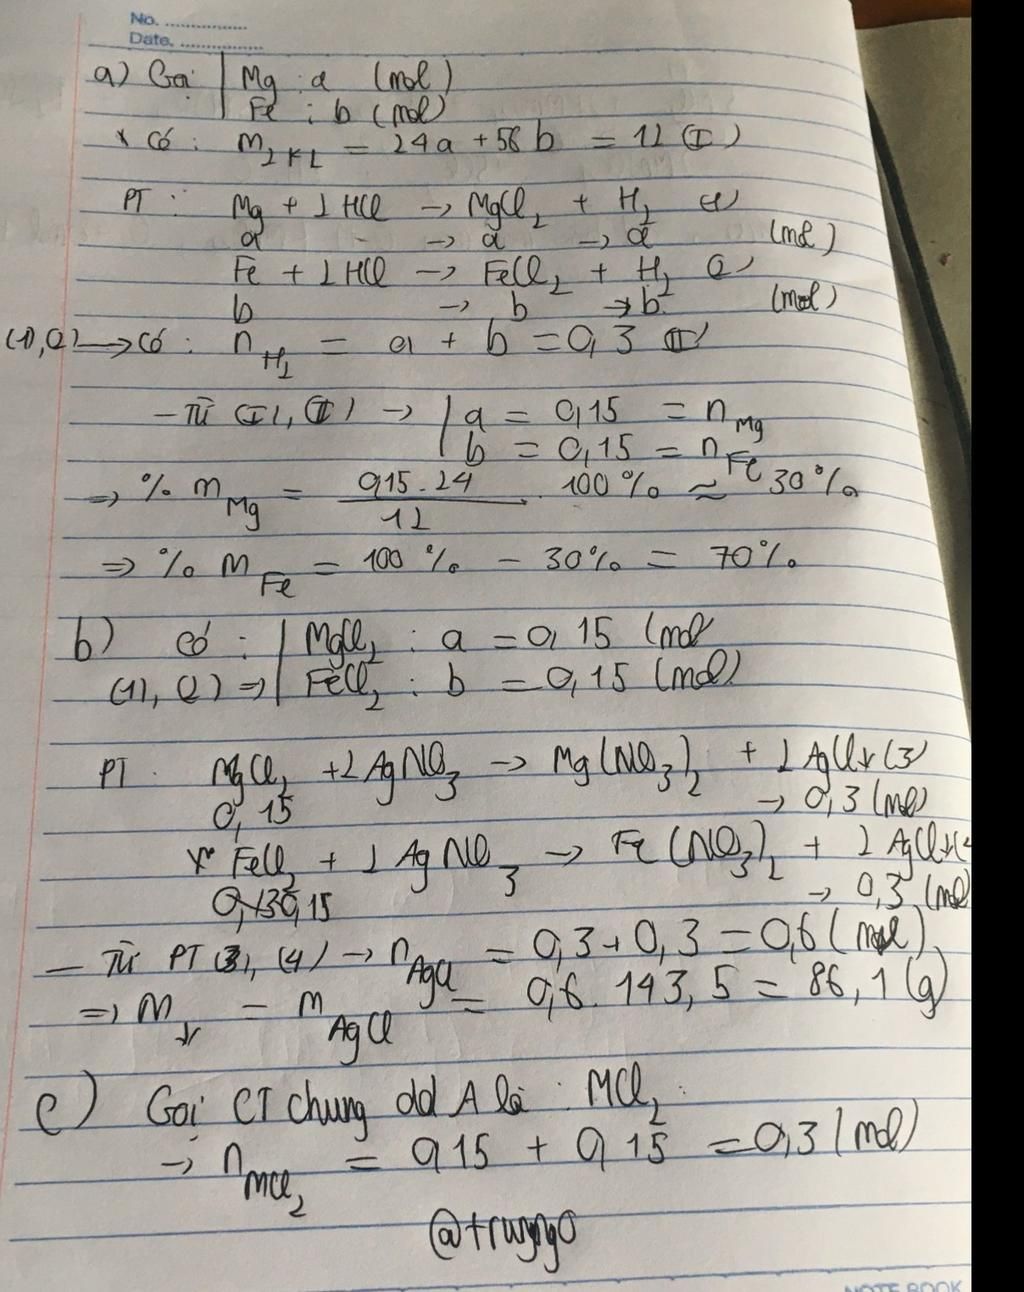 No. ................
Date. ................
a) Gọi | Mg : a (mol)
Fe : b (mol)
* Có : m 2KL = 24a + 56b = 12 (I)
PT : Mg + 2HCl → MgCl2 + H2 (1)
a → a → a (mol)
Fe + 2HCl → FeCl2 + H2 (2)
b → b → b (mol)
(1), (2) → Có : nH2 = a + b = 0,3 (II)
- Từ (I), (II) → | a = 0,15 = nMg
b = 0,15 = nFe
=> % mMg = 0,15.24/12 . 100% ≈ 30%
=> % mFe = 100% - 30% = 70%
b) Có : | MgCl2 : a = 0,15 (mol
(1), (2) => | FeCl2 : b = 0,15 (mol)
PT : MgCl2 + 2AgNO3 → Mg(NO3)2 + 2AgCl↓ (3)
0,15 → 0,3 (mol)
* FeCl2 + 2AgNO3 → Fe(NO3)2 + 2AgCl↓ (4
0,15 → 0,3 (mol
- Từ PT (3), (4) → nAgCl = 0,3 + 0,3 = 0,6 (mol)
=> m↓ = mAgCl = 0,6 . 143,5 = 86,1 (g)
c) Gọi CT chung dd A là : MCl2
→ nMCl2 = 0,15 + 0,15 = 0,3 (mol)
NOTE BOOK